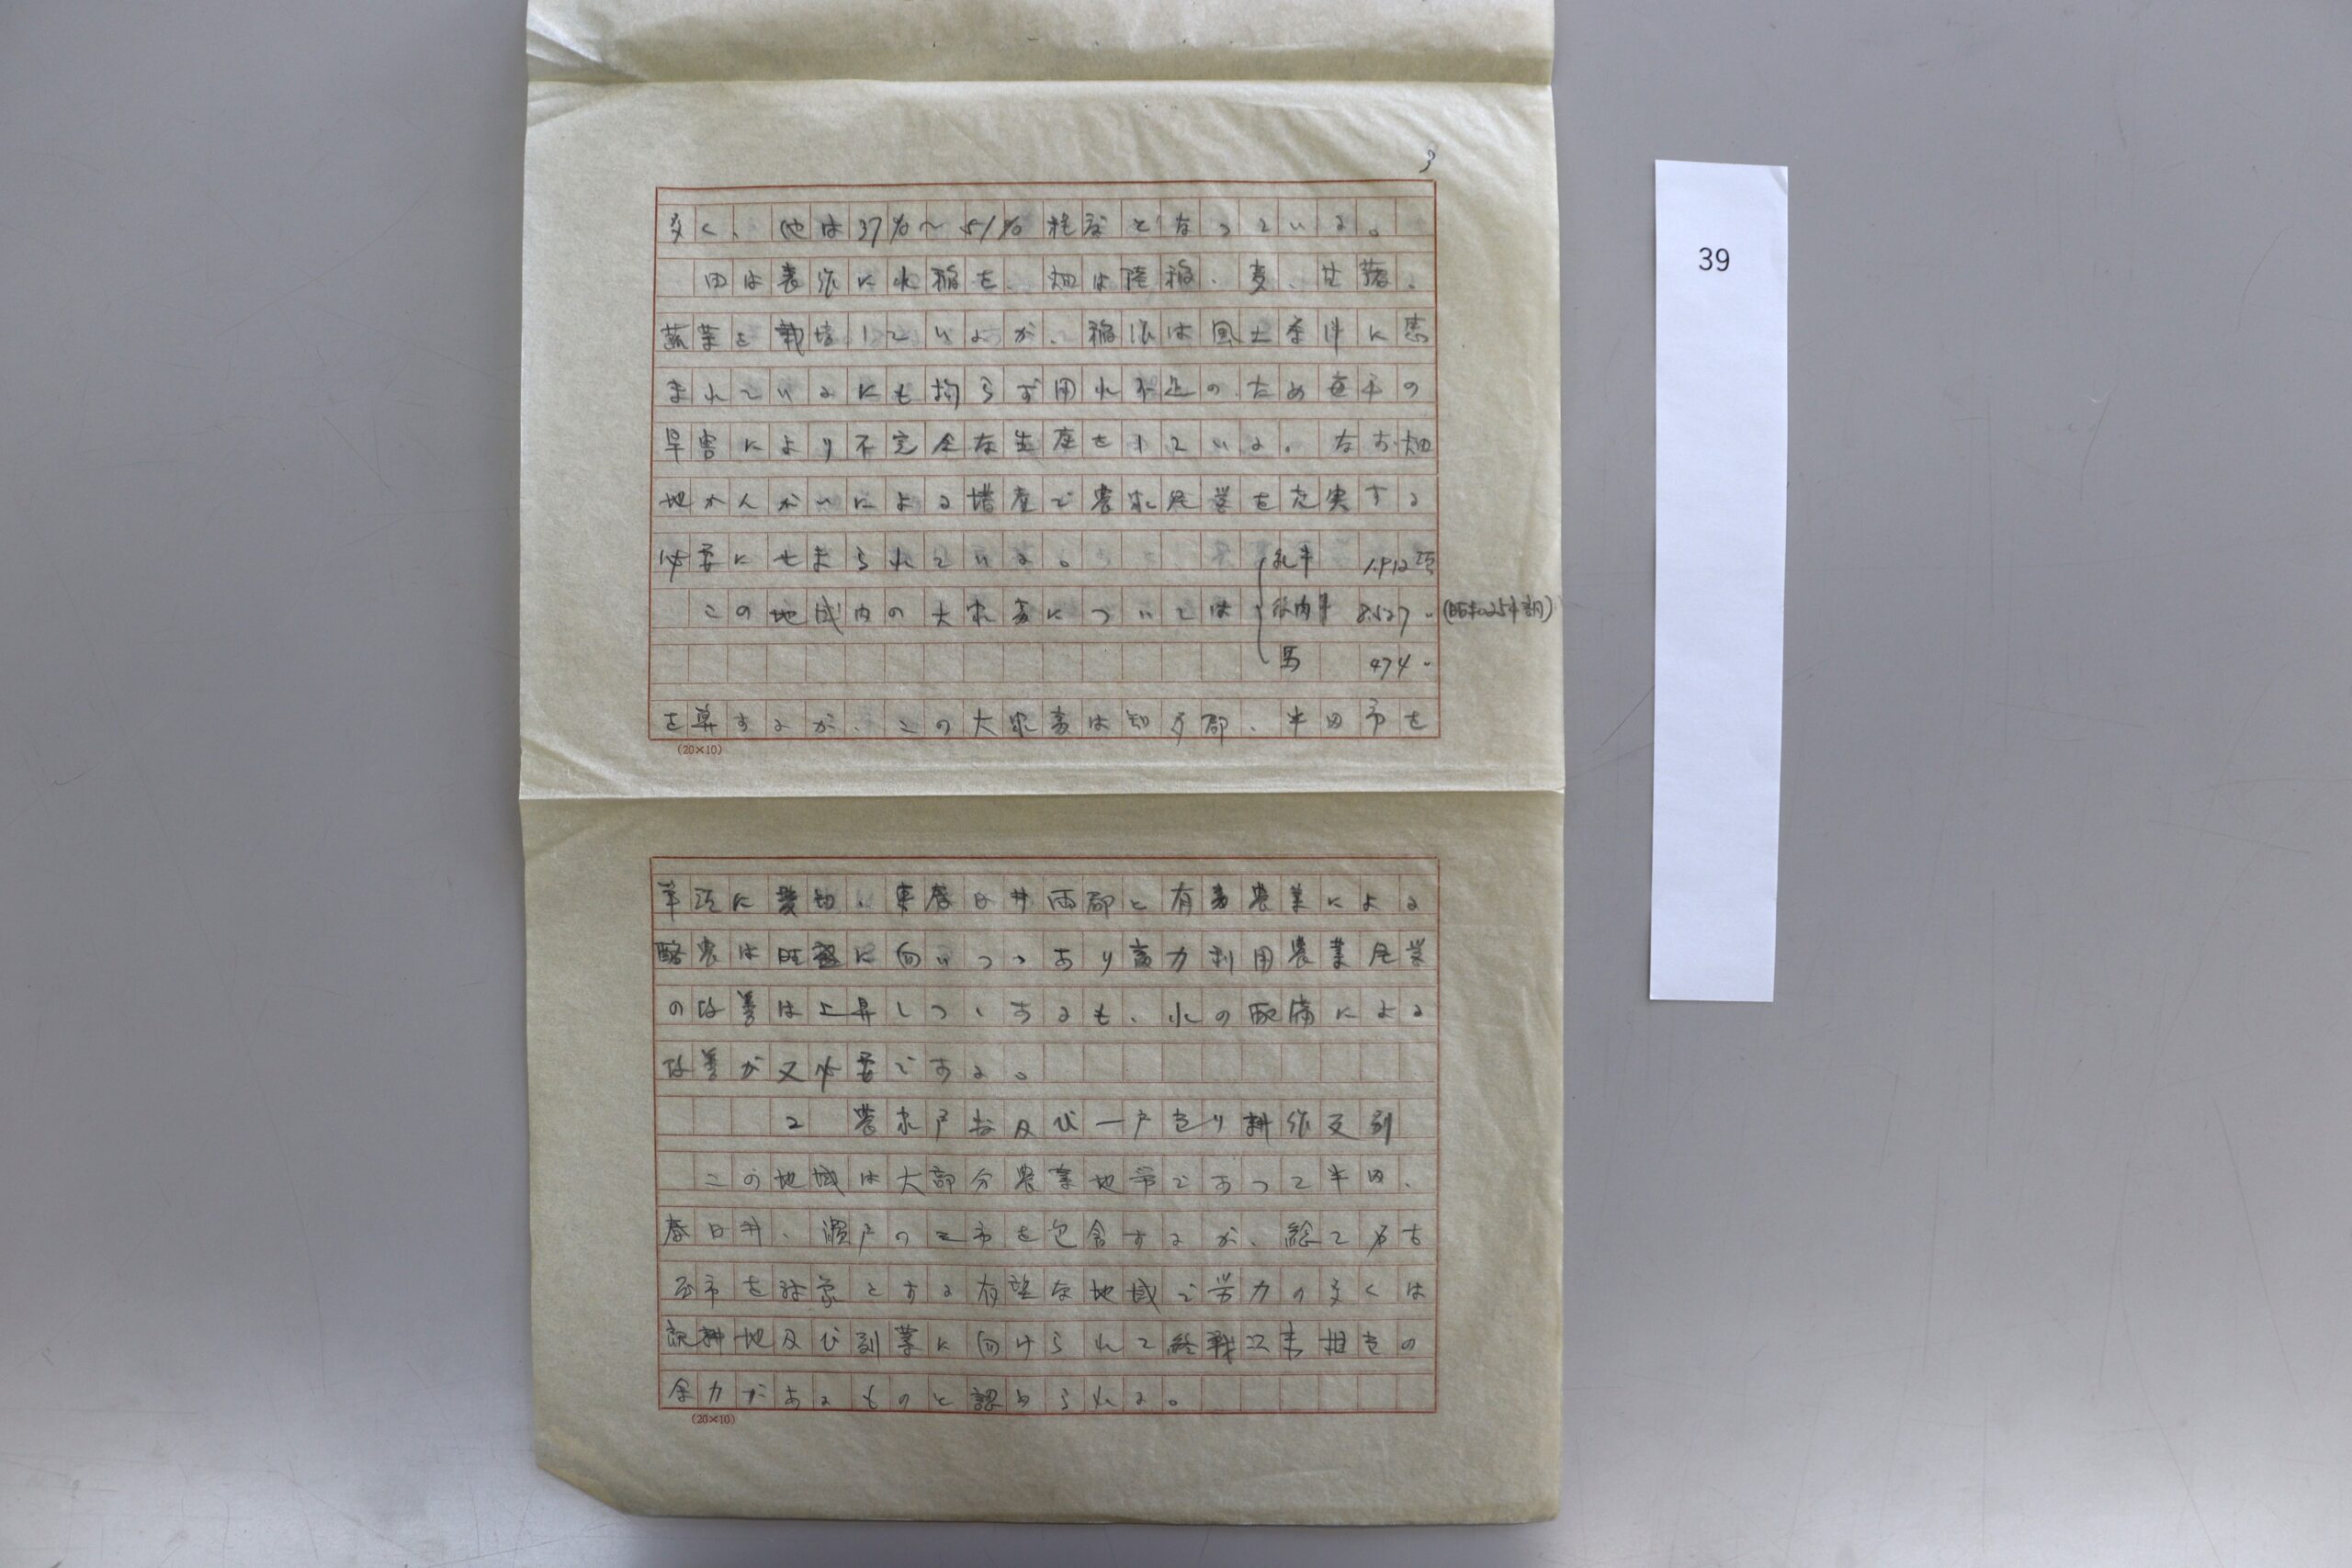 3
多く、他は37%〜51%程度となっている。
田は表作に水稲を、畑は陸稲、麦、甘藷、
蔬菜を栽培しているが、稲作は風土条件に恵
まれているにも拘らず用水不足のため毎年の
旱害により不完全な生産をしている。なお畑
地かんがいによる増産で農家経営を充実する
必要にせまられている。
この地域内の大家畜については
乳牛 1.912頭
役肉牛 8.527〃 (昭和25年調)
馬 474〃
を算するが、この大家畜は知多郡、半田市を
(20×10)
筆頭に愛知、東春日井両郡と有畜農業による
酪農は旺盛に向いつつあり畜力利用農業経営
の改善は上昇しつゝあるも、水の配備による
改善が又必要である。
2 農家戸数及び一戸当り耕作反別
この地域は大部分農業地帯であって半田、
春日井、瀬戸の三市を包含するが、総て名古
屋市を対象とする有望な地域で労力の多くは
既耕地及び副業に向けられて終戦以来相当の
余力があるものと認められる。
(20×10)
39